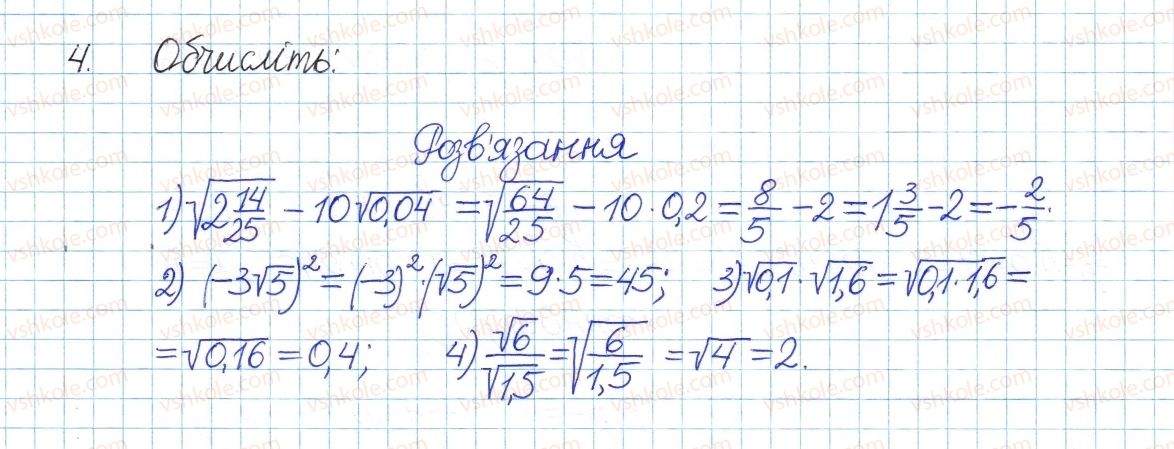 4. Обчисліть:
Розв'язання
1) √(2 14/25) − 10√0,04 = √(64/25) − 10 · 0,2 = 8/5 − 2 = 1 3/5 − 2 = − 2/5.
2) (−3√5)² = (−3)² · (√5)² = 9 · 5 = 45; 3) √0,1 · √1,6 = √(0,1 · 1,6) =
= √0,16 = 0,4; 4) √6/√1,5 = √(6/1,5) = √4 = 2.